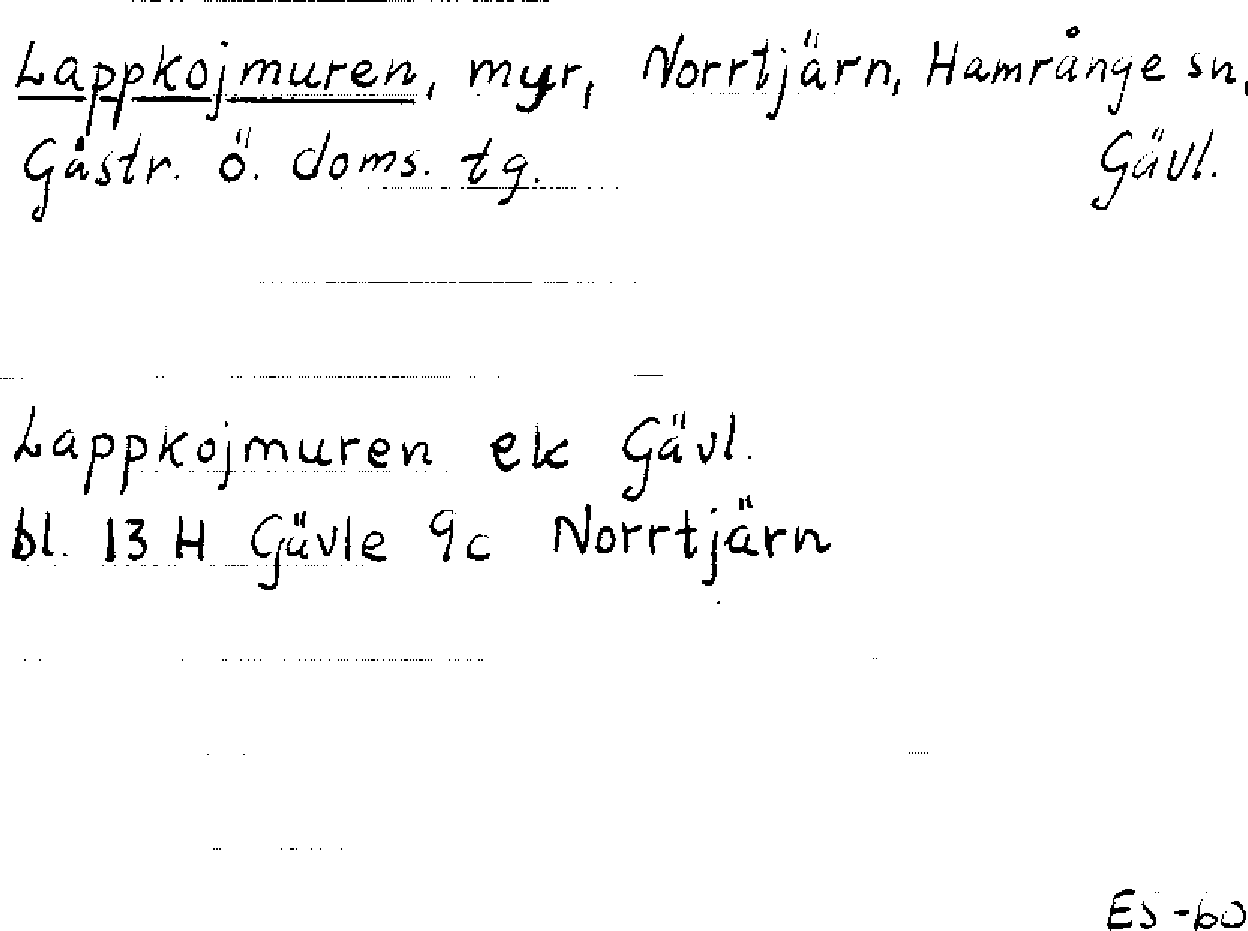 Lappkojmuren, myr, Norrtjärn, Hamrånge sn,
Gästr. ö. doms. tg. Gävl.
Lappkojmuren ek Gävl.
bl. 13 H Gävle 9c Norrtjärn
ES -60